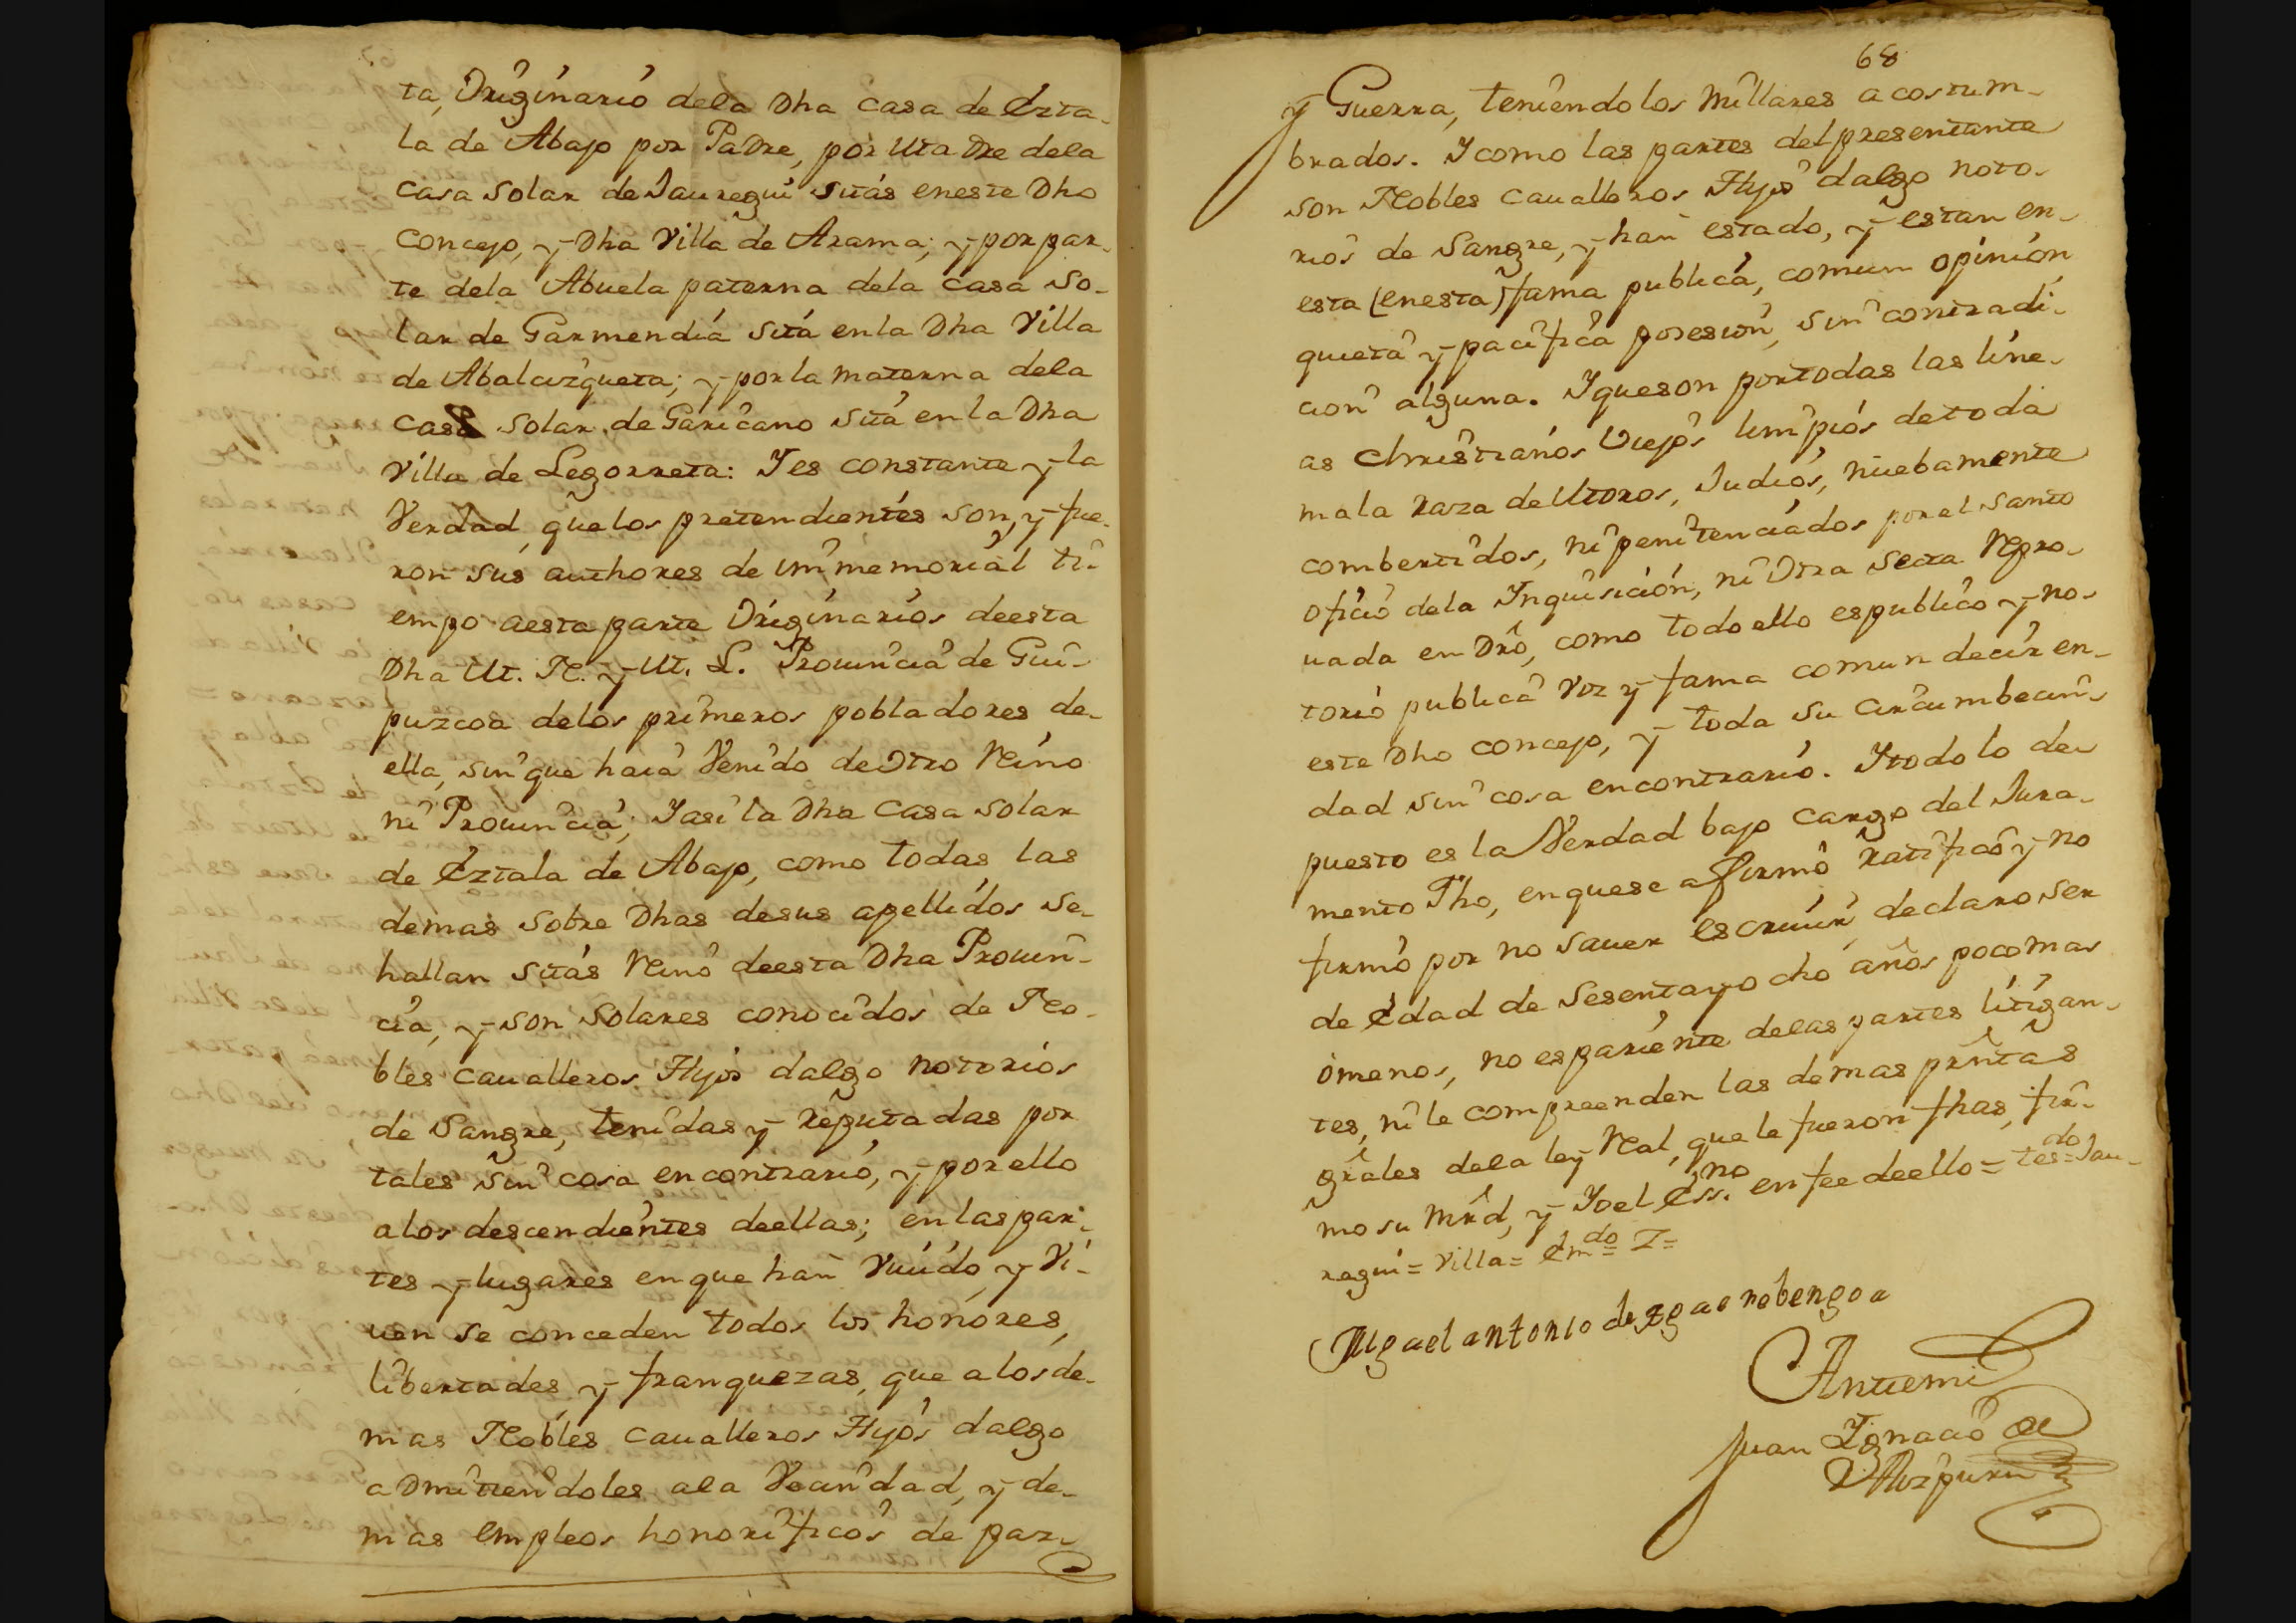 ta, Originario dela Dha casa de Ezta-
la de Abajo por Padre, por Madre dela
casa solar de Jauregui sitás eneste Dho
concejo, y Dha Villa de Arama; y por par-
te dela Abuela paterna dela casa so-
lar de Garmendia sitá enla Dha Villa
de Abalcizqueta; y porla materna dela
casa solar de Garicano sitá en la Dha
Villa de Legorreta: Yes constante y la
Verdad, quelos pretendientes son, y fue-
ron sus authores de immemorial ti-
empo aesta parte Originarios deesta
Dha M. N. y M. L. Prouincia de Gui-
puzcoa delos primeros pobladores de-
ella, sin que haia Venido deOtro Reino
ni Prouincia; Yasi la Dha Casa solar
de Eztala de Abajo, como todas las
demas sobre Dhas desus apellidos se-
hallan sitás Reino deesta Dha Prouin-
cia, y son solares conocidos de No-
bles caualleros Hijos dalgo notorios
de Sangre, tenidas y Reputadas por
tales sin cosa en contrario, y por ello
alos descendientes deellas; en las par-
tes y lugares en que han Viuido, y Vi-
uen se conceden todos los honores,
libertades, y franquezas, que alosde-
mas Nobles caualleros Hijos dalgo
aDmitiendoles ala Vecindad, y de-
mas empleos honorificos de paz
68
y Guerra, teniendolos Millares acostum-
brados. Y como las partes del presentante
son Nobles caualleros Hijos dalgo noto-
rios de Sangre, y han estado, y estan en-
esta (enesta) fama publica, comun opinion
quieta y pacifica posesion, sin contradi-
cion alguna. Y queson portodas las line-
as christianos Viejos limpios detoda
mala raza deMoros, Judios, nuebamente
combertidos, ni penitenciados porel santo
oficio dela Inquisición, ni Otra Secta Repro-
uada en Dro, como todo ello espublico y no-
torio publica voz y fama comun decir en-
este Dho concejo, y toda su circumbecin-
dad sin cosa encontrario. Y todo lo de-
puesto es la Verdad bajo cargo del Jura-
mento Fho, enquese afirmó ratificó y no
firmó por no sauer escriuir, declaro ser
de Edad de Sesentayocho años pocomas
ómenos, no espariente delas partes litigan-
tes, ni le compreenden las demas prêntas
grales dela ley Real, que le fueron fhas, fir-
mo su Mrd, y Yoel Essno. enfee deello = tesdo = Jau-
regui = Villa = Emdo = I =
Miguel antonio de
Antemi
Juan Ignacio de
Aizpuru